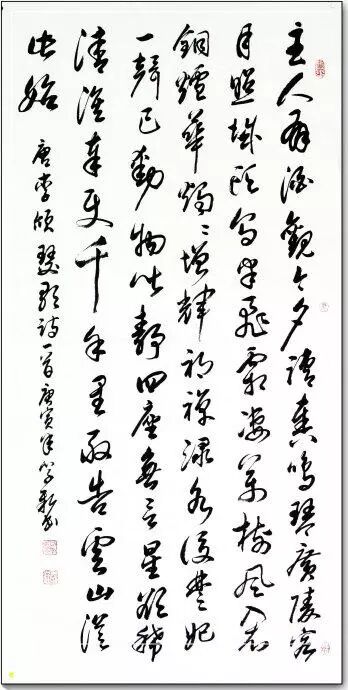 主人有酒歡今夕請奏鳴琴廣陵客
月照城頭烏半飛霜淒萬樹風入衣
銅爐華燭〻增輝初彈淥水後楚妃
一聲已動物皆靜四座無言星欲稀
清淮奉使千余里敢告雲山從
此始
唐李頎琴歌詩一首庚寅年書